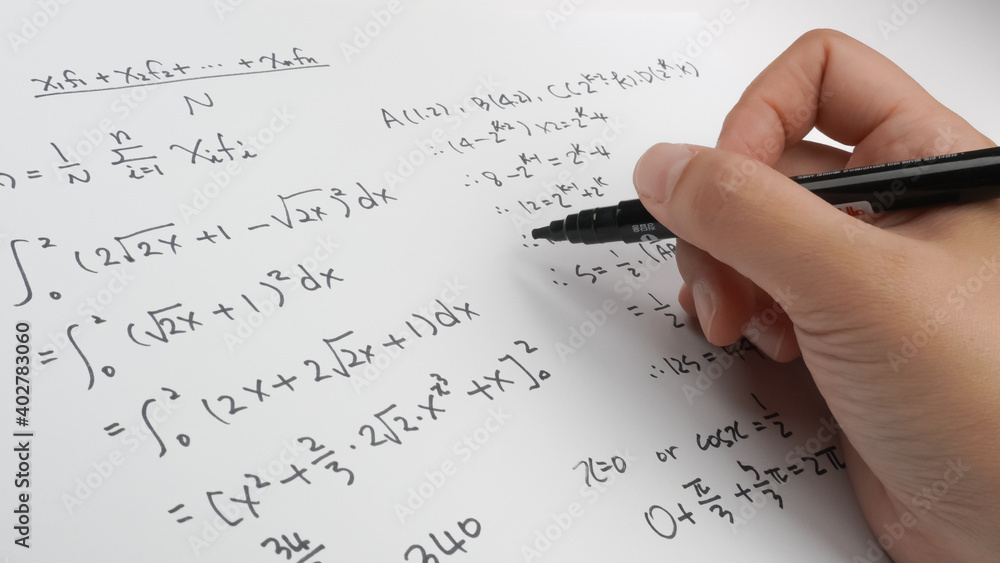 x₁f₁ + x₂f₂ + ··· + xₙfₙ
N
= 1/N Σ i=1 n xᵢfᵢ
∫₀² (2√2x + 1 − √2x)² dx
= ∫₀² (√2x + 1)² dx
= ∫₀² (2x + 2√2x + 1) dx
= [x² + 2/3 · 2√2 · x^(3/2) + x]₀²
34
340
A(1,2), B(4,2), C(2^(k-2), k), D(2^k, k)
∴ (4 − 2^(k-2)) × 2 = 2^k − 4
∴ 8 − 2^(k-1) = 2^k − 4
∴ 12 = 2^(k-1) + 2^k
∴
∴ S = 1/2 · (A
= 1/2
∴ 12S =
x=0 or cosx = 1/2
0 + π/3 + 5/3 π = 2π
Adobe Stock | #402783060